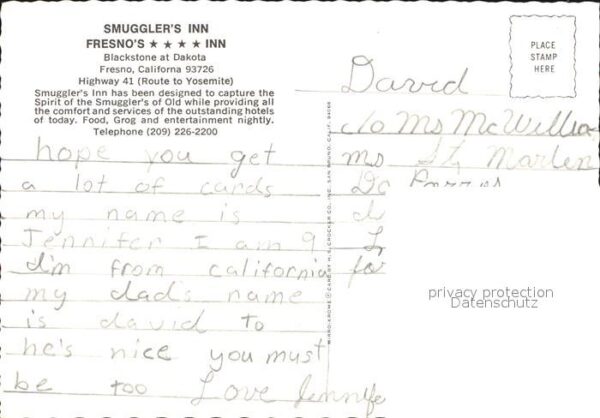 SMUGGLER'S INN
FRESNO'S ★ ★ ★ ★ INN
Blackstone at Dakota
Fresno, Californa 93726
Highway 41 (Route to Yosemite)
Smuggler's Inn has been designed to capture the
Spirit of the Smuggler's of Old while providing all
the comfort and services of the outstanding hotels
of today. Food, Grog and entertainment nightly.
Telephone (209) 226-2200
hope you get
a lot of cards
my name is
Jennifer I am 9
I'm from california
my dad's name
is david to
he's nice you must
be too Love Jennife
PLACE
STAMP
HERE
David
c/o Ms McWillia
ms St, Marten
for
privacy protection
Datenschutz